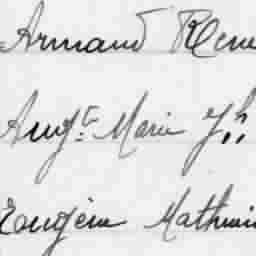 Armand René
Augte Marie Jh
Eugène Mathurin